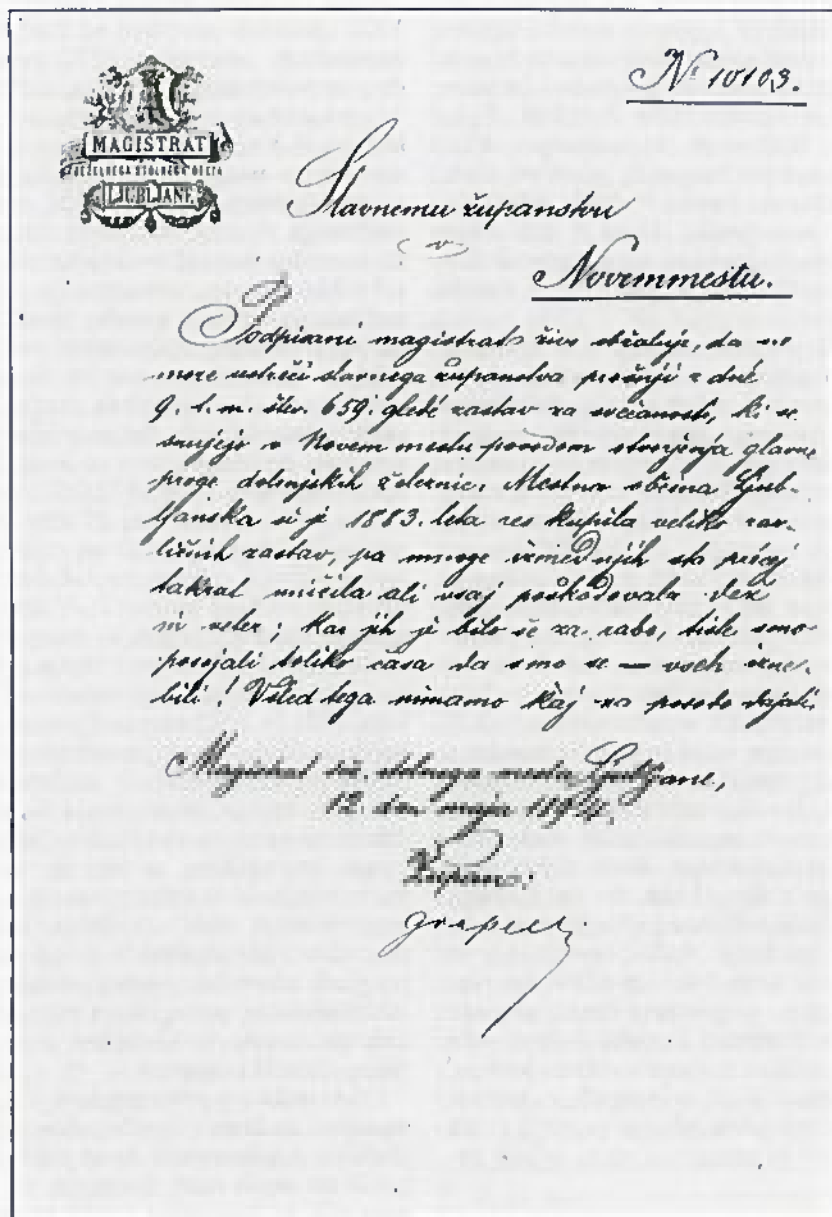 MAGISTRAT
DEŽELNEGA STOLNEGA MESTA
LJUBLJANE
№ 10103.
Slavnemu županstvu
v
Novemmestu.
Podpisani magistrat živo obžaluje, da ne
more ustreči slavnega županstva prošnji z dné
9. t. m. štev. 659. gledé zastav za svečanosti, ki se
snujejo v Novem mestu povodom otvorjenja glavne
proge dolenjskih železnic. Mestna občina Ljub-
ljanska si je 1883. leta res kupila veliko raz-
ličnih zastav, pa mnoge izmed njih sta precej
takrat uničila ali vsaj poškodovala dež
in veter; kar jih je bilo še za rabo, tiste smo
posojali toliko časa da smo se — vseh izne-
bili! Vsled tega nimamo kaj na posodo dajati.
Magistrat dež. stolnega mesta Ljubljane,
12. dan maja 1894.
Župan: